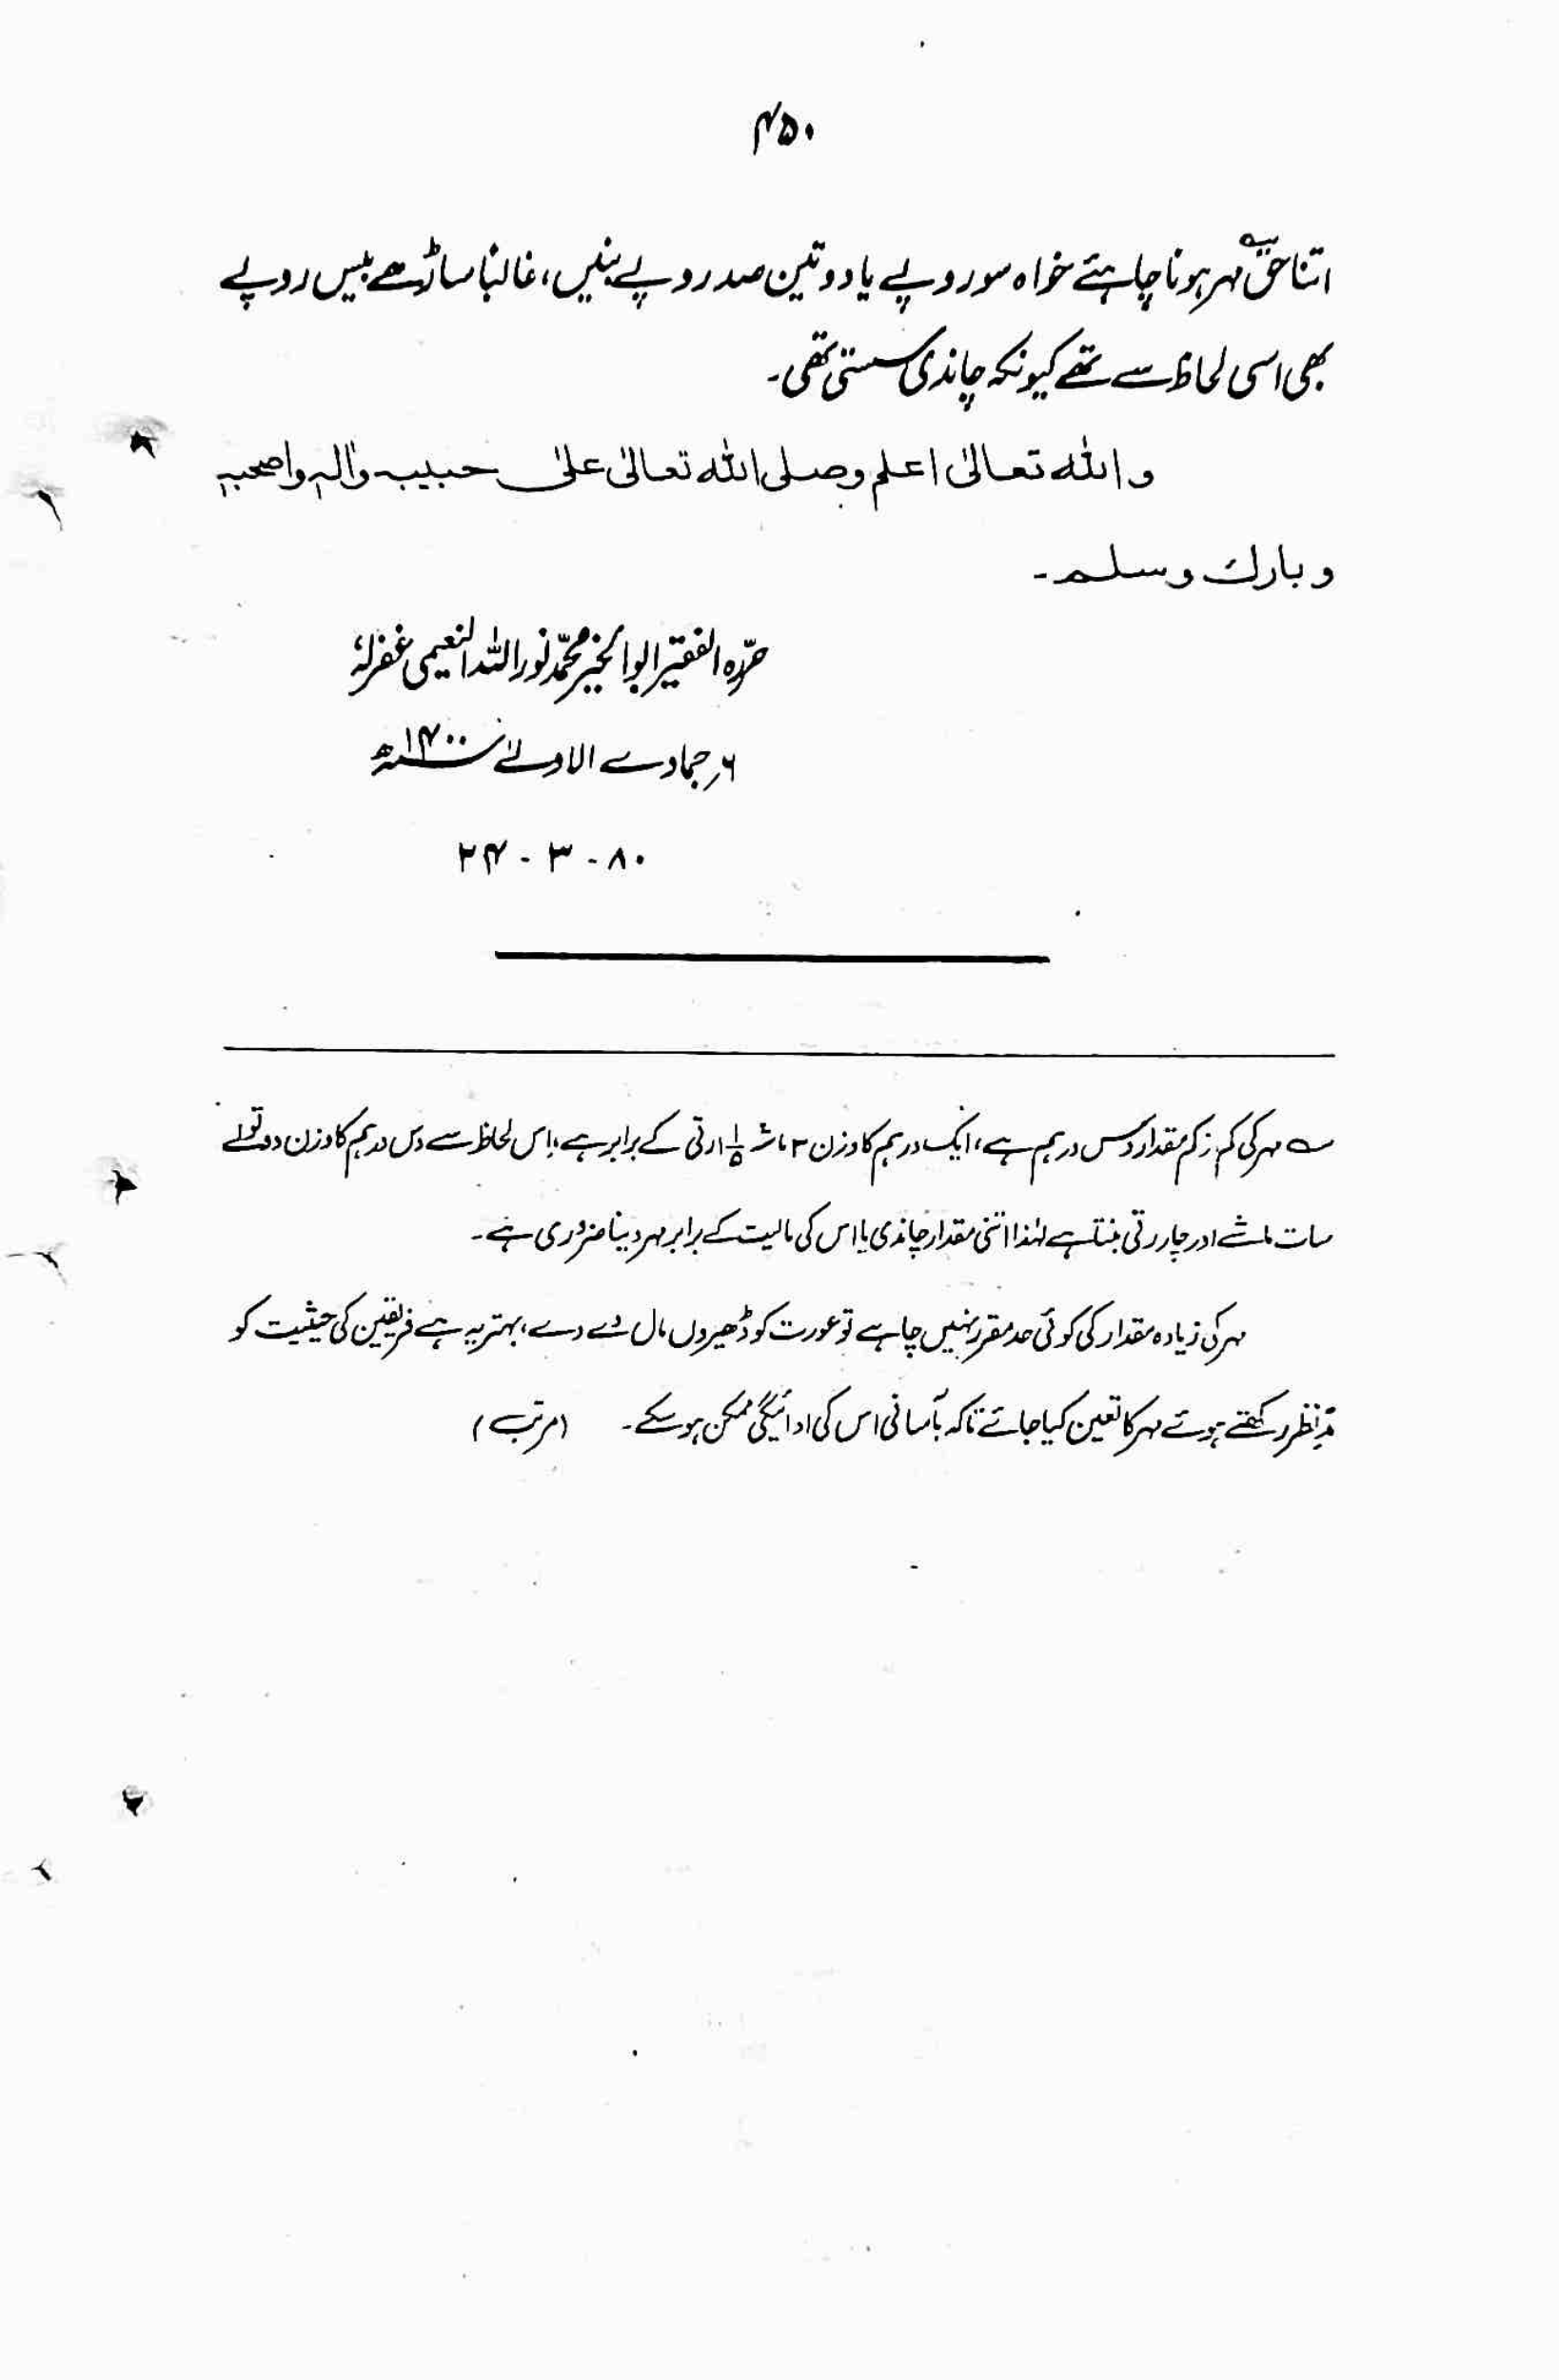 ۴۵۰
اتنا حق مہر ہونا چاہئے خواہ سو روپے یا دو تین صد روپے بنیں، غالبا ساڑھے بیس روپے
بھی اسی لحاظ سے تھے کیونکہ چاندی سستی تھی۔
والله تعالىٰ اعلم وصلى الله تعالىٰ علىٰ حبيبه واٰلہٖ واصحبہٖ
وبارك وسلم۔
حرّرہ الفقیر ابوالخیر محمّد نور اللہ النعیمی غفرلہٗ
۶؍ جمادے الاولےٰ ۱۴۰۰ھ
۲۴ - ۳ - ۸۰
؎ مہر کی کم از کم مقدار دس درہم ہے، ایک درہم کا وزن ۳ ماشہ ۱ ۱/۵ رتی کے برابر ہے، اس لحاظ سے دس درہم کا وزن دو تولے
سات ماشے اور چار رتی بنتا ہے لہٰذا اتنی مقدار چاندی یا اس کی مالیت کے برابر مہر دینا ضروری ہے۔
مہر کی زیادہ مقدار کی کوئی حد مقرر نہیں چاہے تو عورت کو ڈھیروں مال دے دے، بہتر یہ ہے فریقین کی حیثیت کو
مدِّنظر رکھتے ہوئے مہر کا تعین کیا جائے تاکہ بآسانی اس کی ادائیگی ممکن ہوسکے۔ (مرتب)